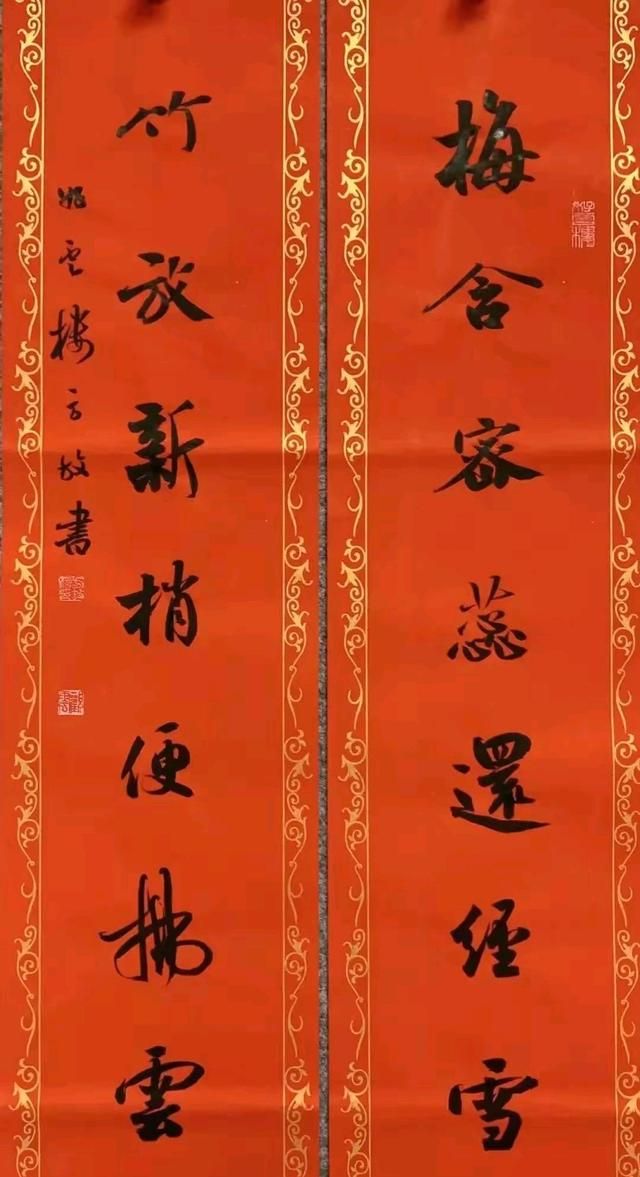 梅含密蕊還經雪
竹放新梢便拂雲